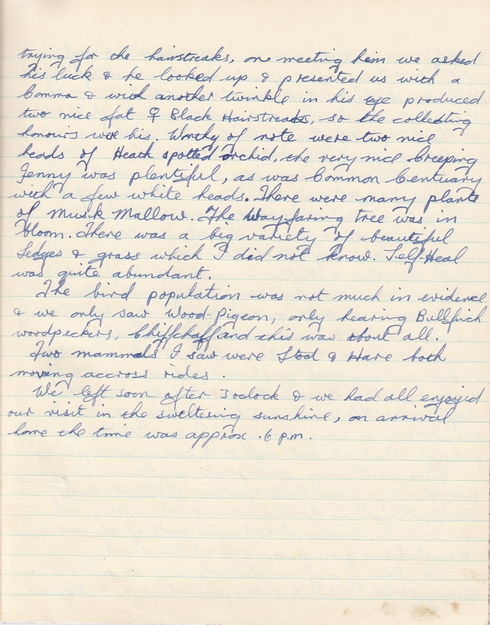 trying for the hairstreaks, on meeting him we asked
his luck & he looked up & presented us with a
Comma & with another twinkle in his eye produced
two nice fat ♀ Black Hairstreaks, so the collecting
honours were his. Worthy of note were two nice
heads of Heath spotted orchid, the very nice Creeping
Jenny was plentiful, as was Common Centuary
with a few white heads. There were many plants
of Musk Mallow. The Wayfaring tree was in
bloom. There was a big variety of beautiful
Sedges & grass which I did not know. Self Heal
was quite abundant.
The bird population was not much in evidence
& we only saw Wood Pigeon, only hearing Bullfinch
woodpeckers, Chiffchaff and this was about all.
Two mammals I saw were Stoat & Hare both
moving accross rides.
We left soon after 3 oclock & we had all enjoyed
our visit in the sweltering sunshine, on arrival
home the time was approx. 6 p.m.